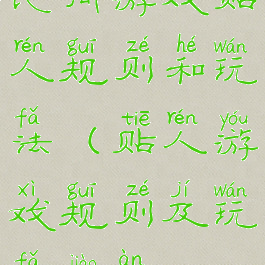 游戏贴
rén guī zé hé wán
人规则和玩
fǎ tiē rén yóu
法（贴人游
xì guī zé jí wán
戏规则及玩
fǎ jiào àn